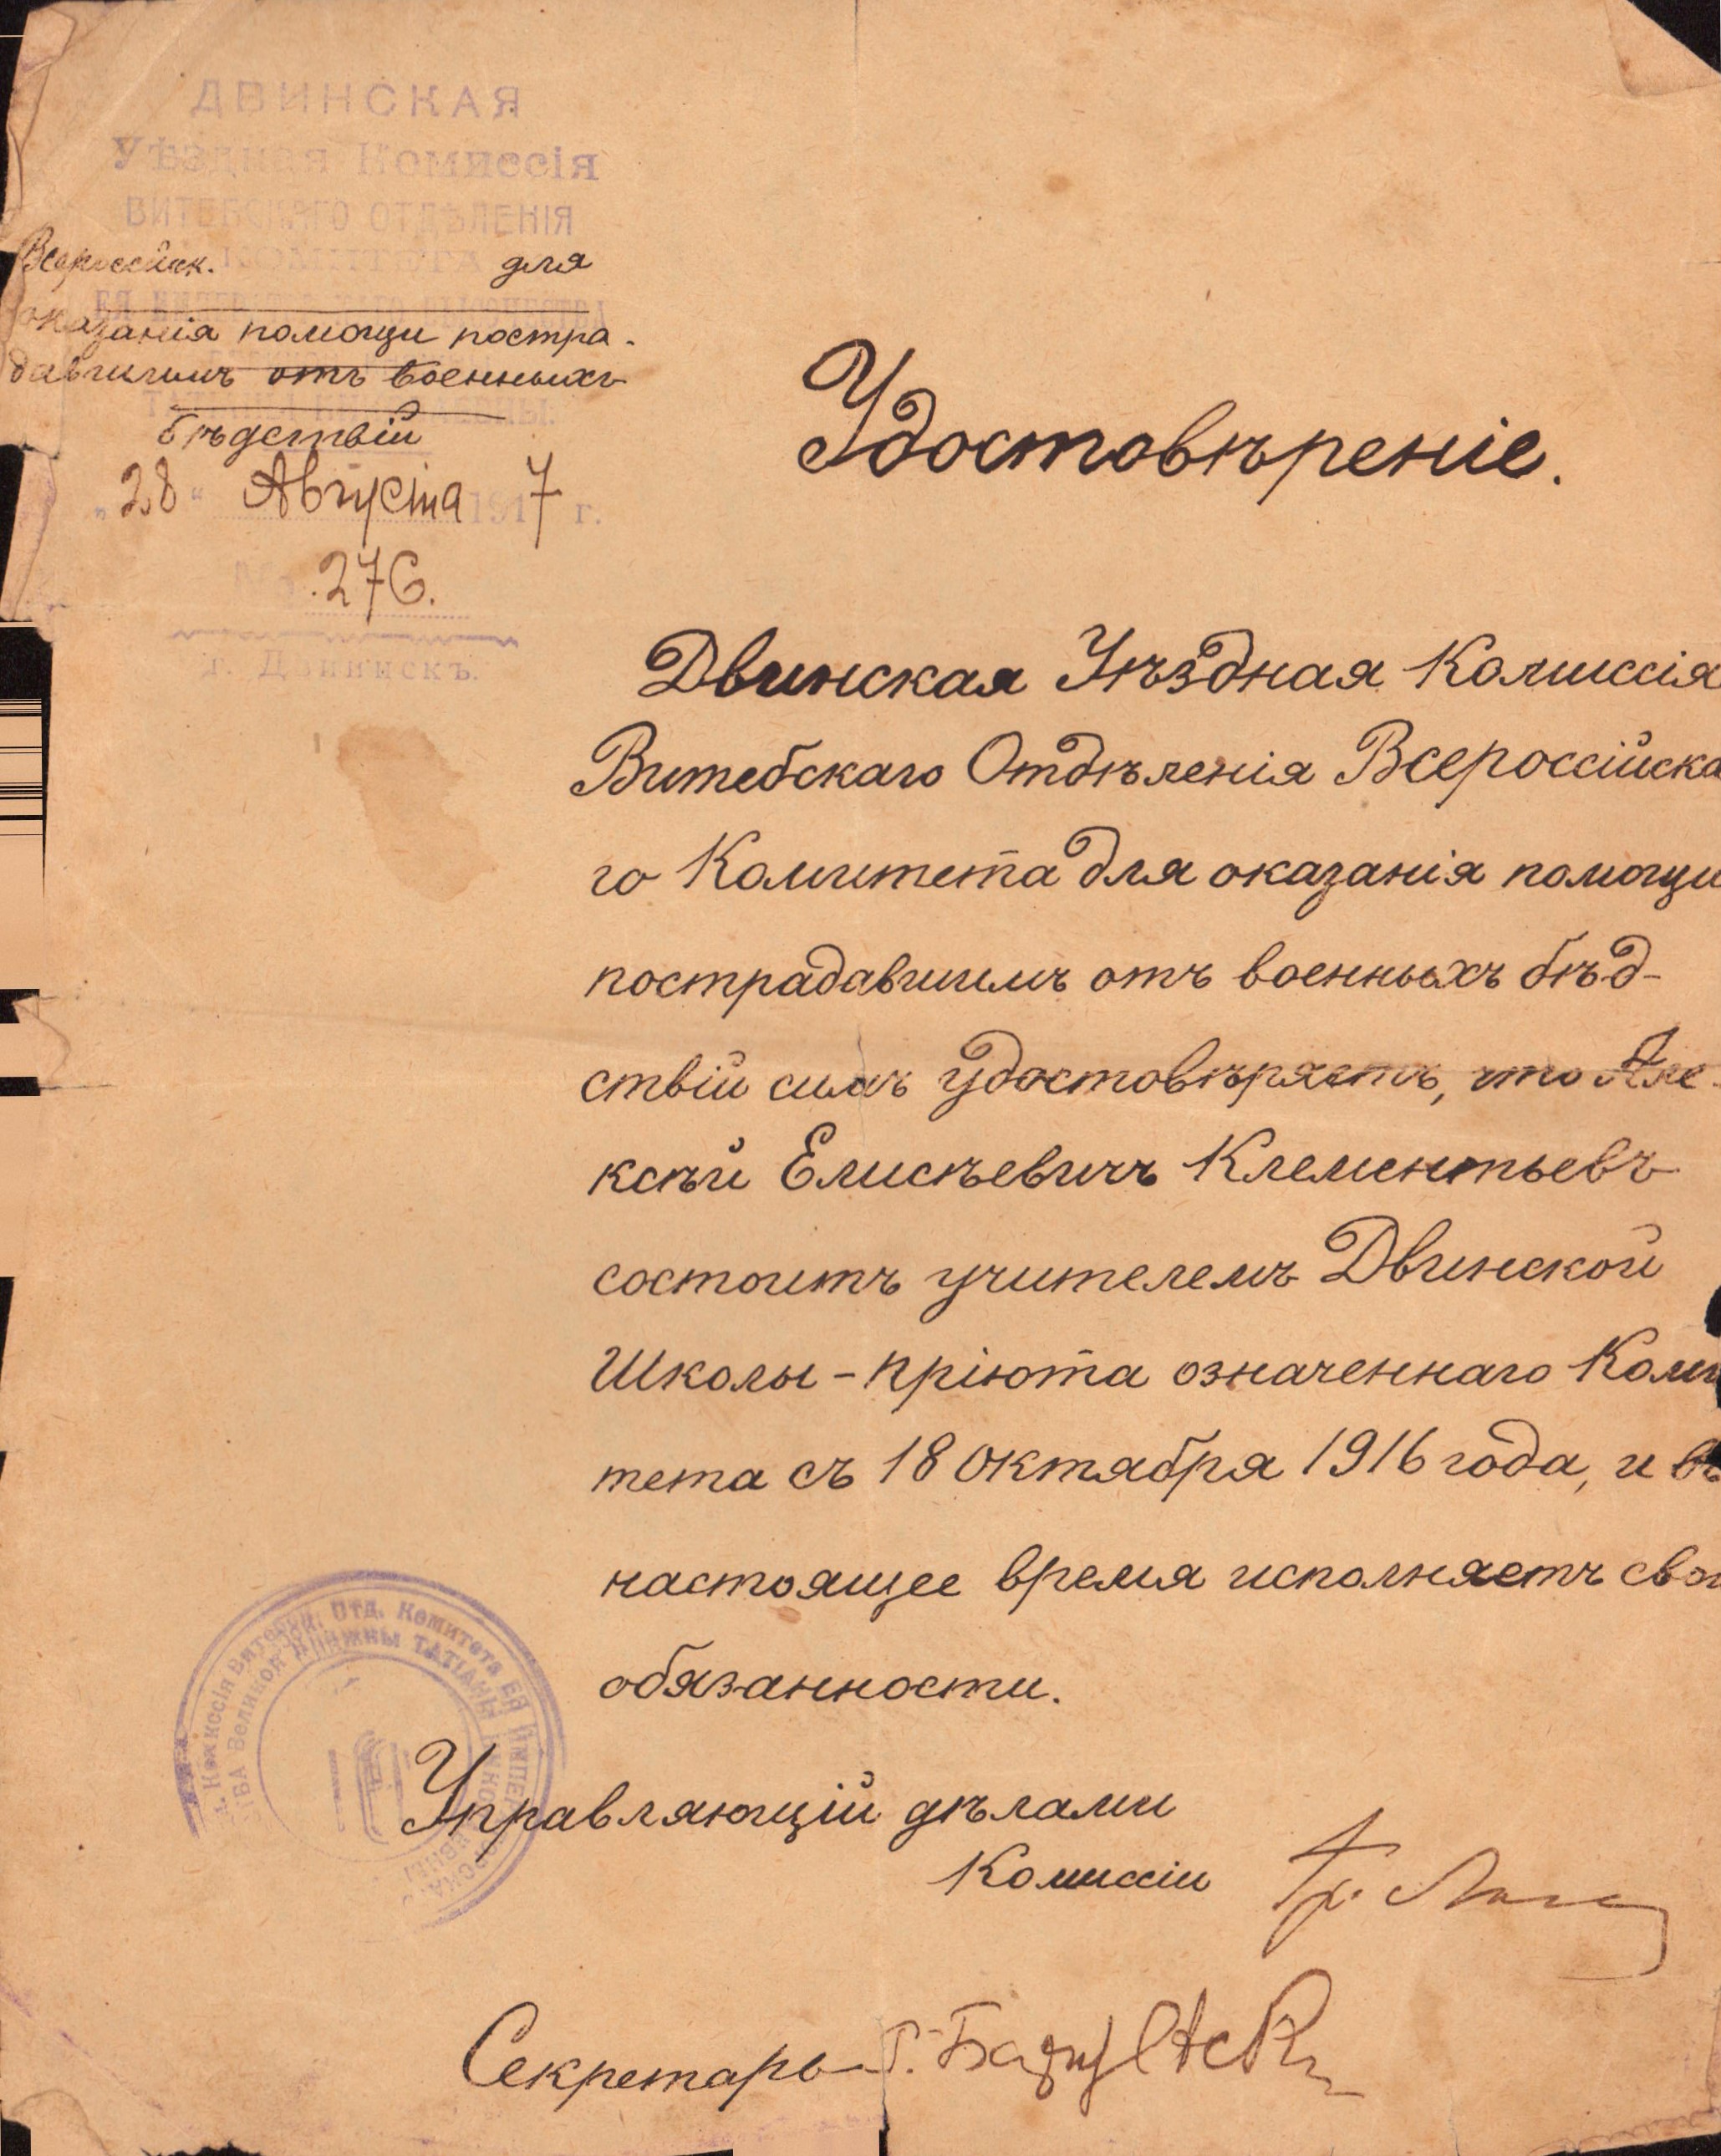 ДВИНСКАЯ
Уѣздная Комиссія
ВИТЕБСКАГО ОТДѢЛЕНІЯ
КОМИТЕТА
Всероссійск. для
оказанія помощи постра-
давшимъ отъ военныхъ
бѣдствій
„28“ Августа 1917 г.
№ 276.
г. Двинскъ.
Удостовѣреніе.
Двинская Уѣздная Комиссія
Витебскаго Отдѣленія Всероссійска
го Комитета для оказанія помощи
пострадавшимъ отъ военныхъ бѣд-
ствій симъ удостовѣряетъ, что Але-
ксѣй Елисѣевичъ Клементьевъ
состоитъ учителемъ Двинской
Школы-пріюта означеннаго Коми
тета съ 18 октября 1916 года, и въ
настоящее время исполняетъ сво
обязанности.
Комиссія Витебск. Отд. Комитета ЕЯ ИМПЕРАТОРСКА
ТВА Великой Княжны ТАТІАНЫ НИКОЛАЕВНЫ
Управляющій дѣлами
Комиссіи
Секретарь